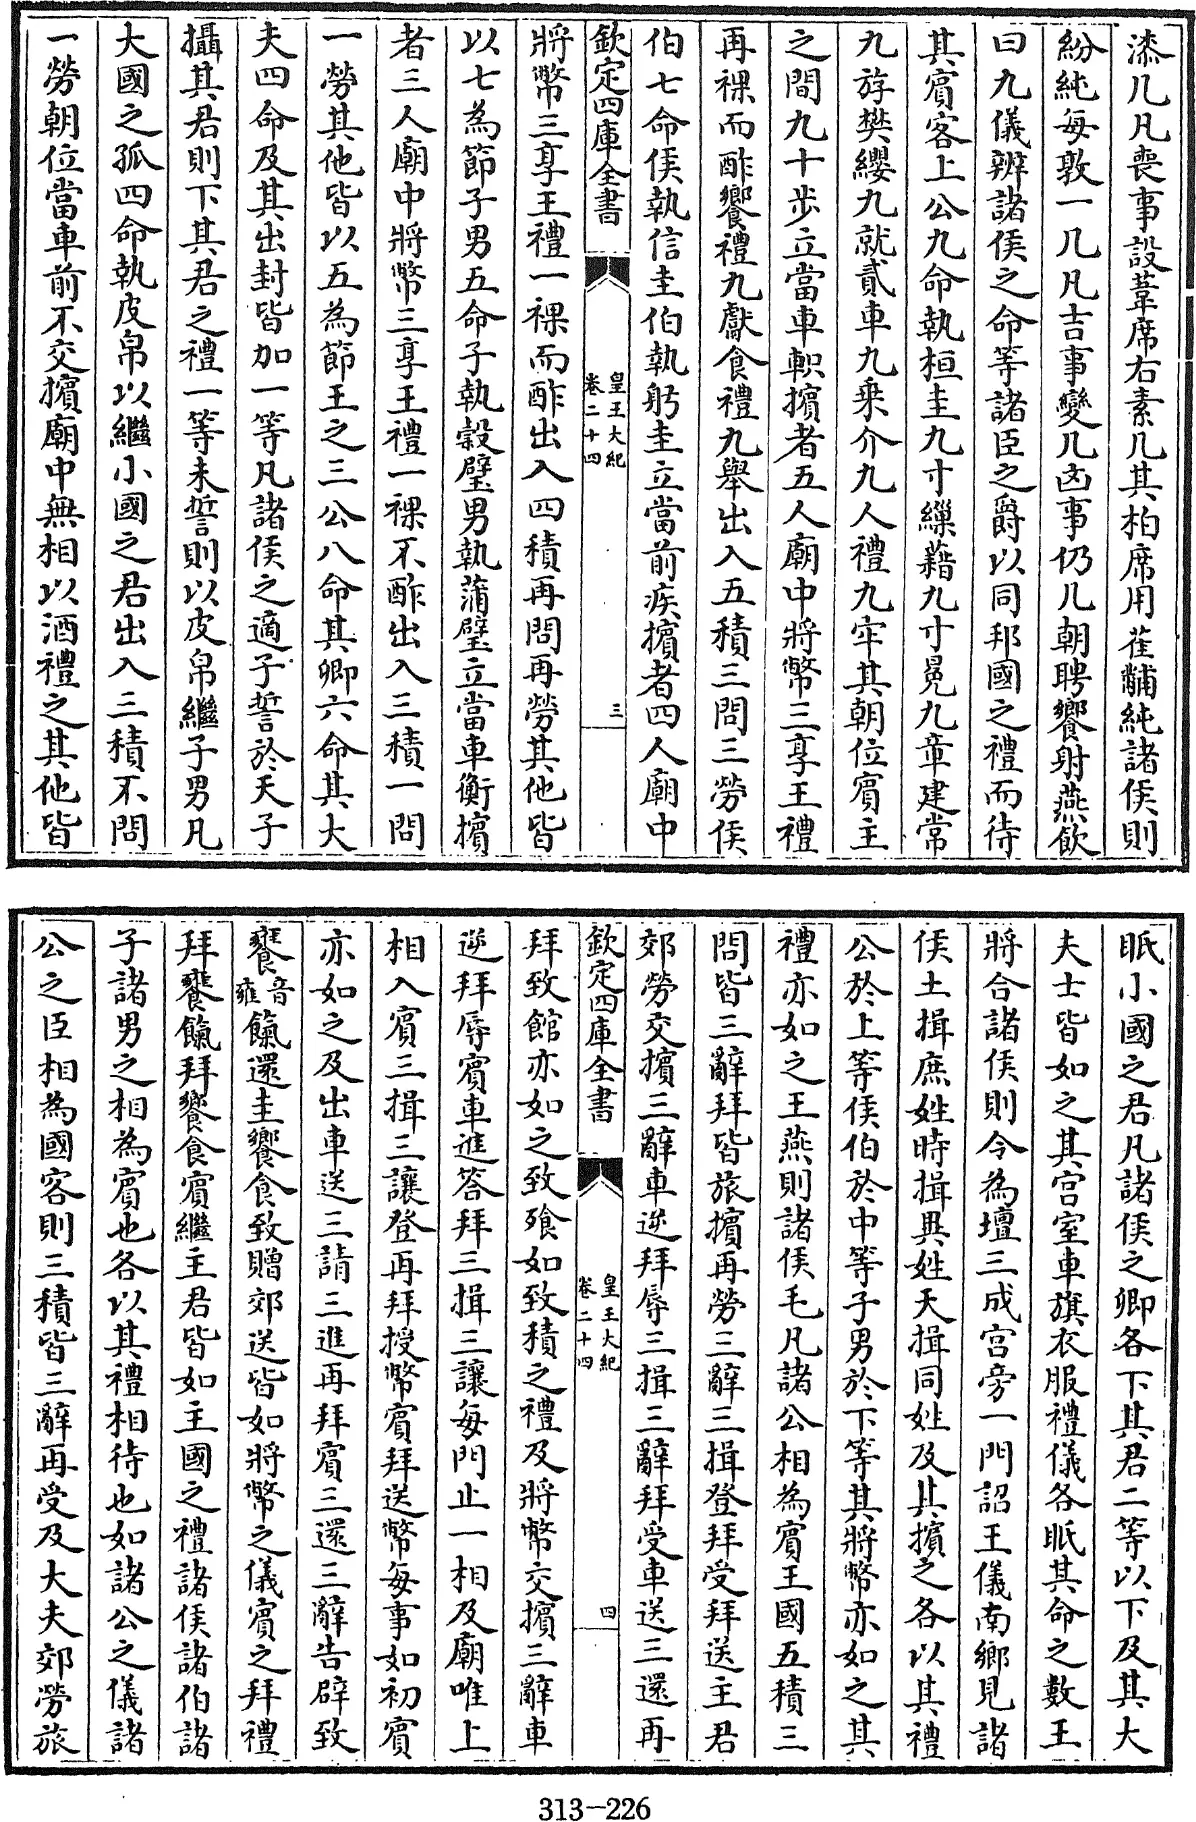 漆几凡喪事設葦席右素几其柏席用萑黼純諸侯則
紛純每敦一几凡吉事變几凶事仍几朝聘饗射燕飲
曰九儀辨諸侯之命等諸臣之爵以同邦國之禮而待
其賓客上公九命執桓圭九寸繅藉九寸冕九章建常
九斿樊纓九就貳車九乗介九人禮九牢其朝位賓主
之間九十步立當車軹擯者五人廟中將幣三享王禮
再祼而酢饗禮九獻食禮九舉出入五積三問三勞侯
伯七命侯執信圭伯執躬圭立當前疾擯者四人廟中
欽定四庫全書
皇王大紀
卷二十四
三
將幣三享王禮一祼而酢出入四積再問再勞其他皆
以七為節子男五命子執穀璧男執蒲璧立當車衡擯
者三人廟中將幣三享王禮一祼不酢出入三積一問
一勞其他皆以五為節王之三公八命其卿六命其大
夫四命及其出封皆加一等凡諸侯之適子誓於天子
攝其君則下其君之禮一等未誓則以皮帛繼子男凡
大國之孤四命執皮帛以繼小國之君出入三積不問
一勞朝位當車前不交擯廟中無相以酒禮之其他皆
眡小國之君凡諸侯之卿各下其君二等以下及其大
夫士皆如之其宫室車旗衣服禮儀各眡其命之數王
將合諸侯則令為壇三成宫旁一門詔王儀南鄉見諸
侯土揖庶姓時揖異姓天揖同姓及其擯之各以其禮
公於上等侯伯於中等子男於下等其將幣亦如之其
禮亦如之王燕則諸侯毛凡諸公相為賓王國五積三
問皆三辭拜皆旅擯再勞三辭三揖登拜受拜送主君
郊勞交擯三辭車逆拜辱三揖三辭拜受車送三還再
欽定四庫全書
皇王大紀
卷二十四
四
拜致館亦如之致飱如致積之禮及將幣交擯三辭車
逆拜辱賓車進答拜三揖三讓每門止一相及廟唯上
相入賓三揖三讓登再拜授幣賓拜送幣每事如初賓
亦如之及出車送三請三進再拜賓三還三辭告辟致
饔音雍餼還圭饗食致贈郊送皆如將幣之儀賓之拜禮
拜饔餼拜饗食賓繼主君皆如主國之禮諸侯諸伯諸
子諸男之相為賓也各以其禮相待也如諸公之儀諸
公之臣相為國客則三積皆三辭再受及大夫郊勞旅
313-226